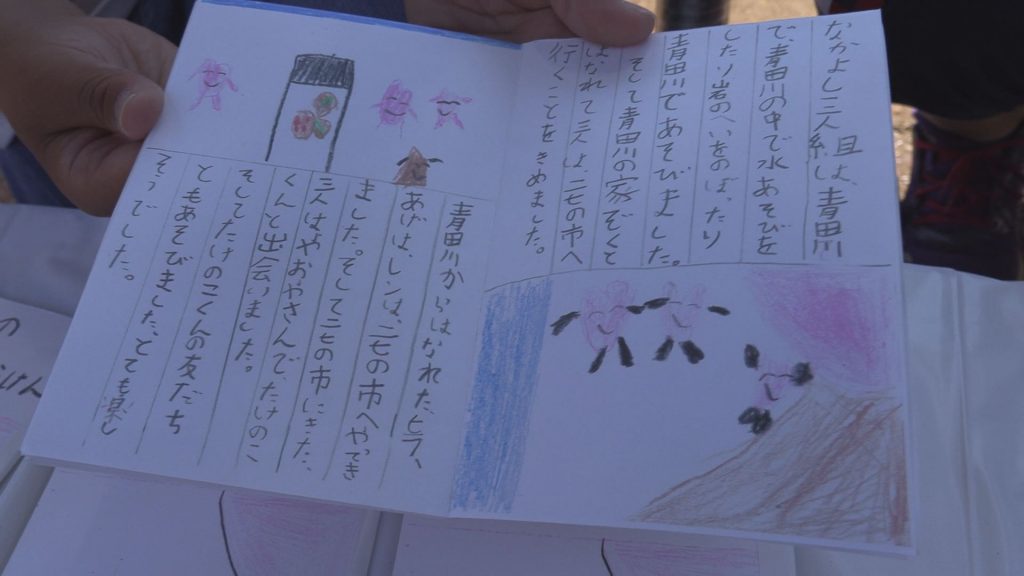 なかよし三人組は、青田川
で青田川の中で水あそびを
したり岩のへいをのぼったり
青田川であそびました。
そして青田川の家でくて
はなれて三人は、二七の市へ
行くことをきめました。
青田川からはなれた、ヒラ、
あげは、レンは、二七の市へやてき
ました。そして二七の市にきた、
三人はやおやさんで、たけのこ
くんと出会いました。
そしてたけのこくんの友だち
ともあそびました、とても楽し
そうでした。
の
けん